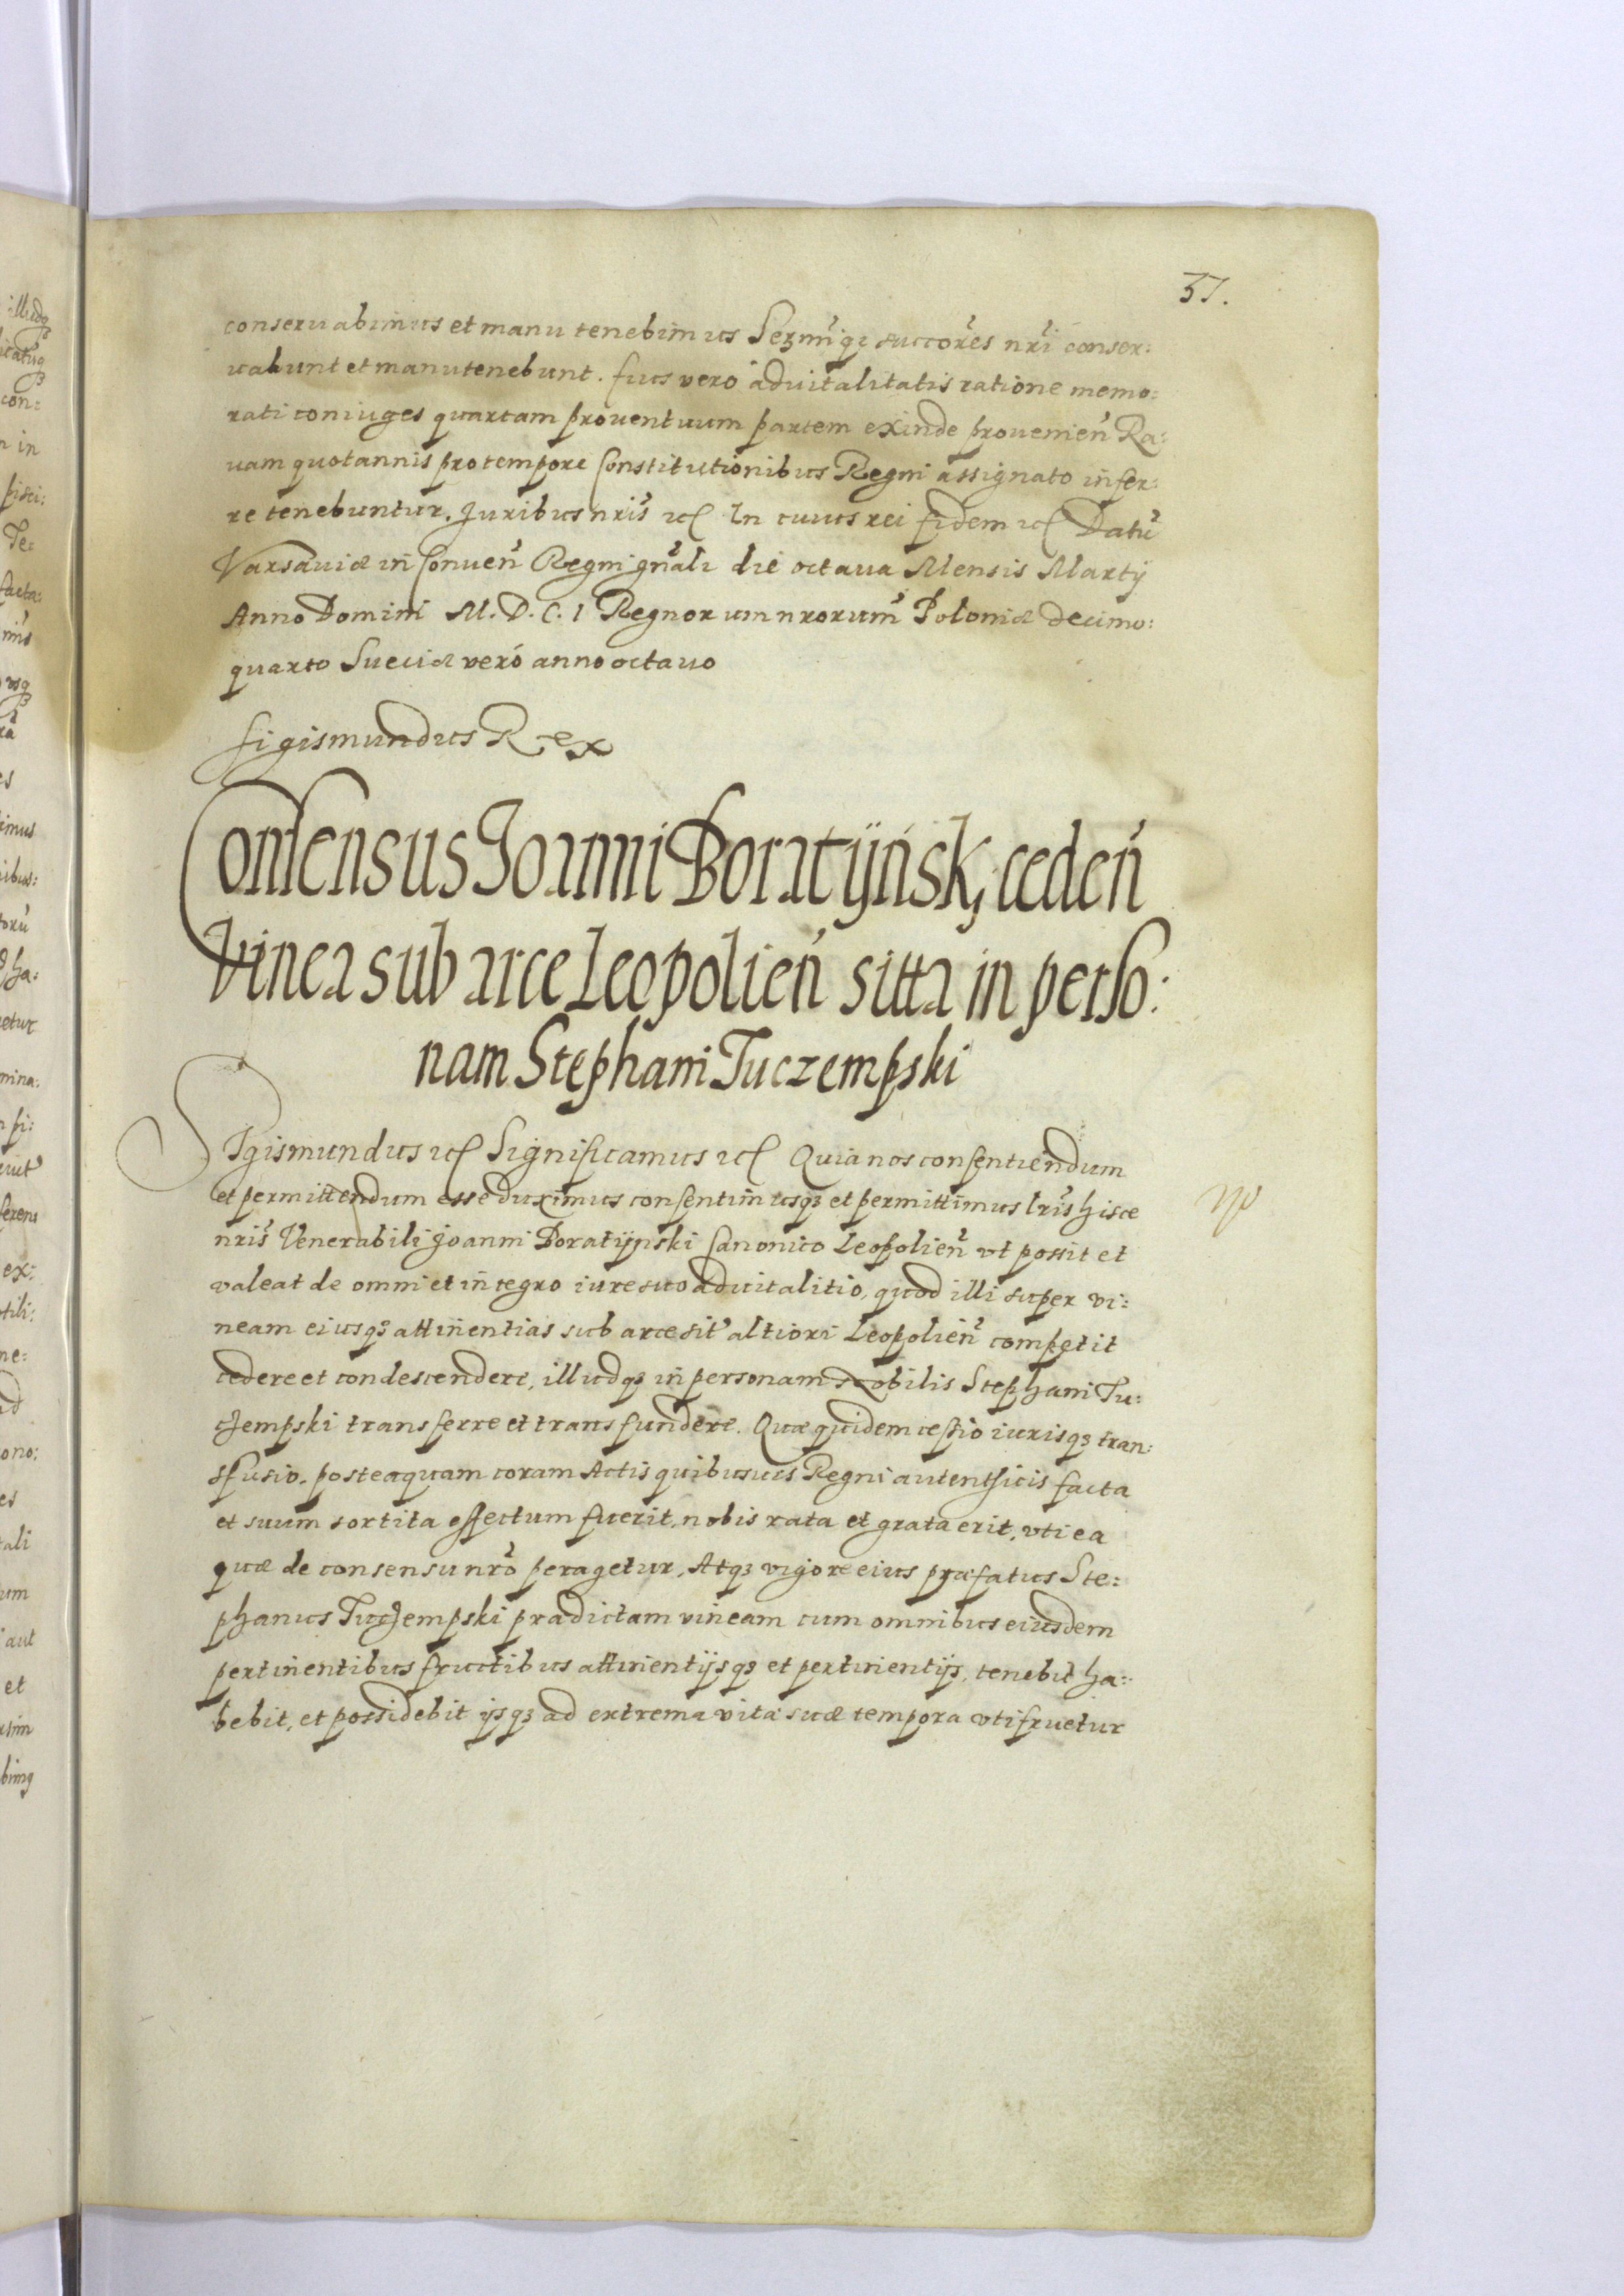 37.
conseruabimus et manu tenebimus Sezmi͂q₃ succor̃es nr̃i conser:
uabunt et manutenebunt. Ius vero aduitalitatis ratione memo:
rati coniuges quartam prouentuum partem exinde prouenien̉ Ra:
uam quotannis pro tempore Constitutionibus Regni assignato infer:
re tenebuntur. Juribus nris̉ etc In cuius rei fidem etc Datủ
Varsauiæ in Conuen̉ Regni gnalỉ die octaua Mensis Martij
Anno Domini M.D.C.1 Regnorum nrorum̉ Poloniæ decimo:
quarto Sueciæ veró anno octauo
Sigismundus Rex
Consensus Joanni Boratÿńsk, ceden̉
Vinea sub arce Leopolień sitta in perso:
nam Stephani Tuczempski
Sigismundus etc Significamus etc Quia nos consentiendum
et permittendum esse duximus consentimusq₃ et permittimus lris̉ hisce
nris̉ Venerabili Joanni Boratÿnski Canonico Leopolien̉ vt possit et
valeat de omni et integro iure suo aduitalitio, quod illi super vi:
neam eiusq₃ attinentias sub arce sit̉ altiori Leopolien̉ competit
cedere et condescendere, illudq₃ in personam Nobilis Stephani Tu:
czempski transferre et transfundere. Quæ quidem cessio iurisq₃ tran:
sfusio, posteaquam coram Actis quibusuis Regni autenthicis facta
et suum sortita effectum fuerit, nobis rata et grata erit, vti ea
quæ de consensu nrõ peragetur. Atq₃ vigore eius præfatus Ste:
phanus Tuczempski prædictam vineam cum omnibus eiusdem
pertinentibus fructibus attinentijsq₃ et pertinentijs, tenebit ha:
bebit, et possidebit ijsq₃ ad extrema vitæ suæ tempora vtifruetur